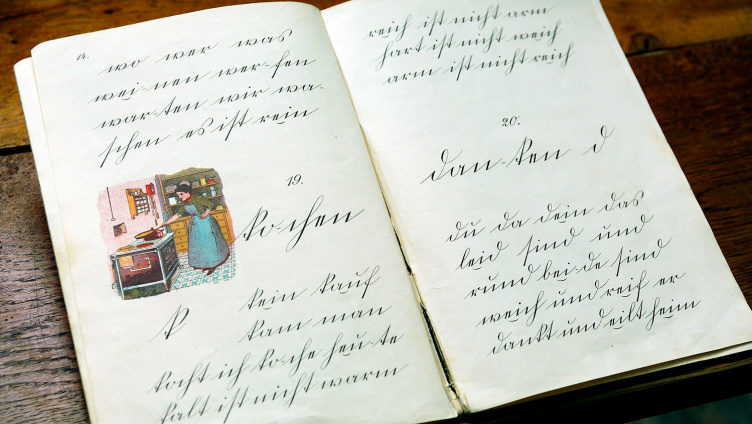 14.
wo wer was
wei-nen wer-fen
war-ten wir wa-
schen es ist rein
19.
ko-chen
k kein kauf
kam man
kocht ich ko-che heu-te
kalt ist nicht warm
reich ist nicht arm
hart ist nicht weich
arm ist nicht reich
20.
dan-ken d
du da dein das
leid sind und
rund bei-de sind
weich und reif er
dankt und eilt heim